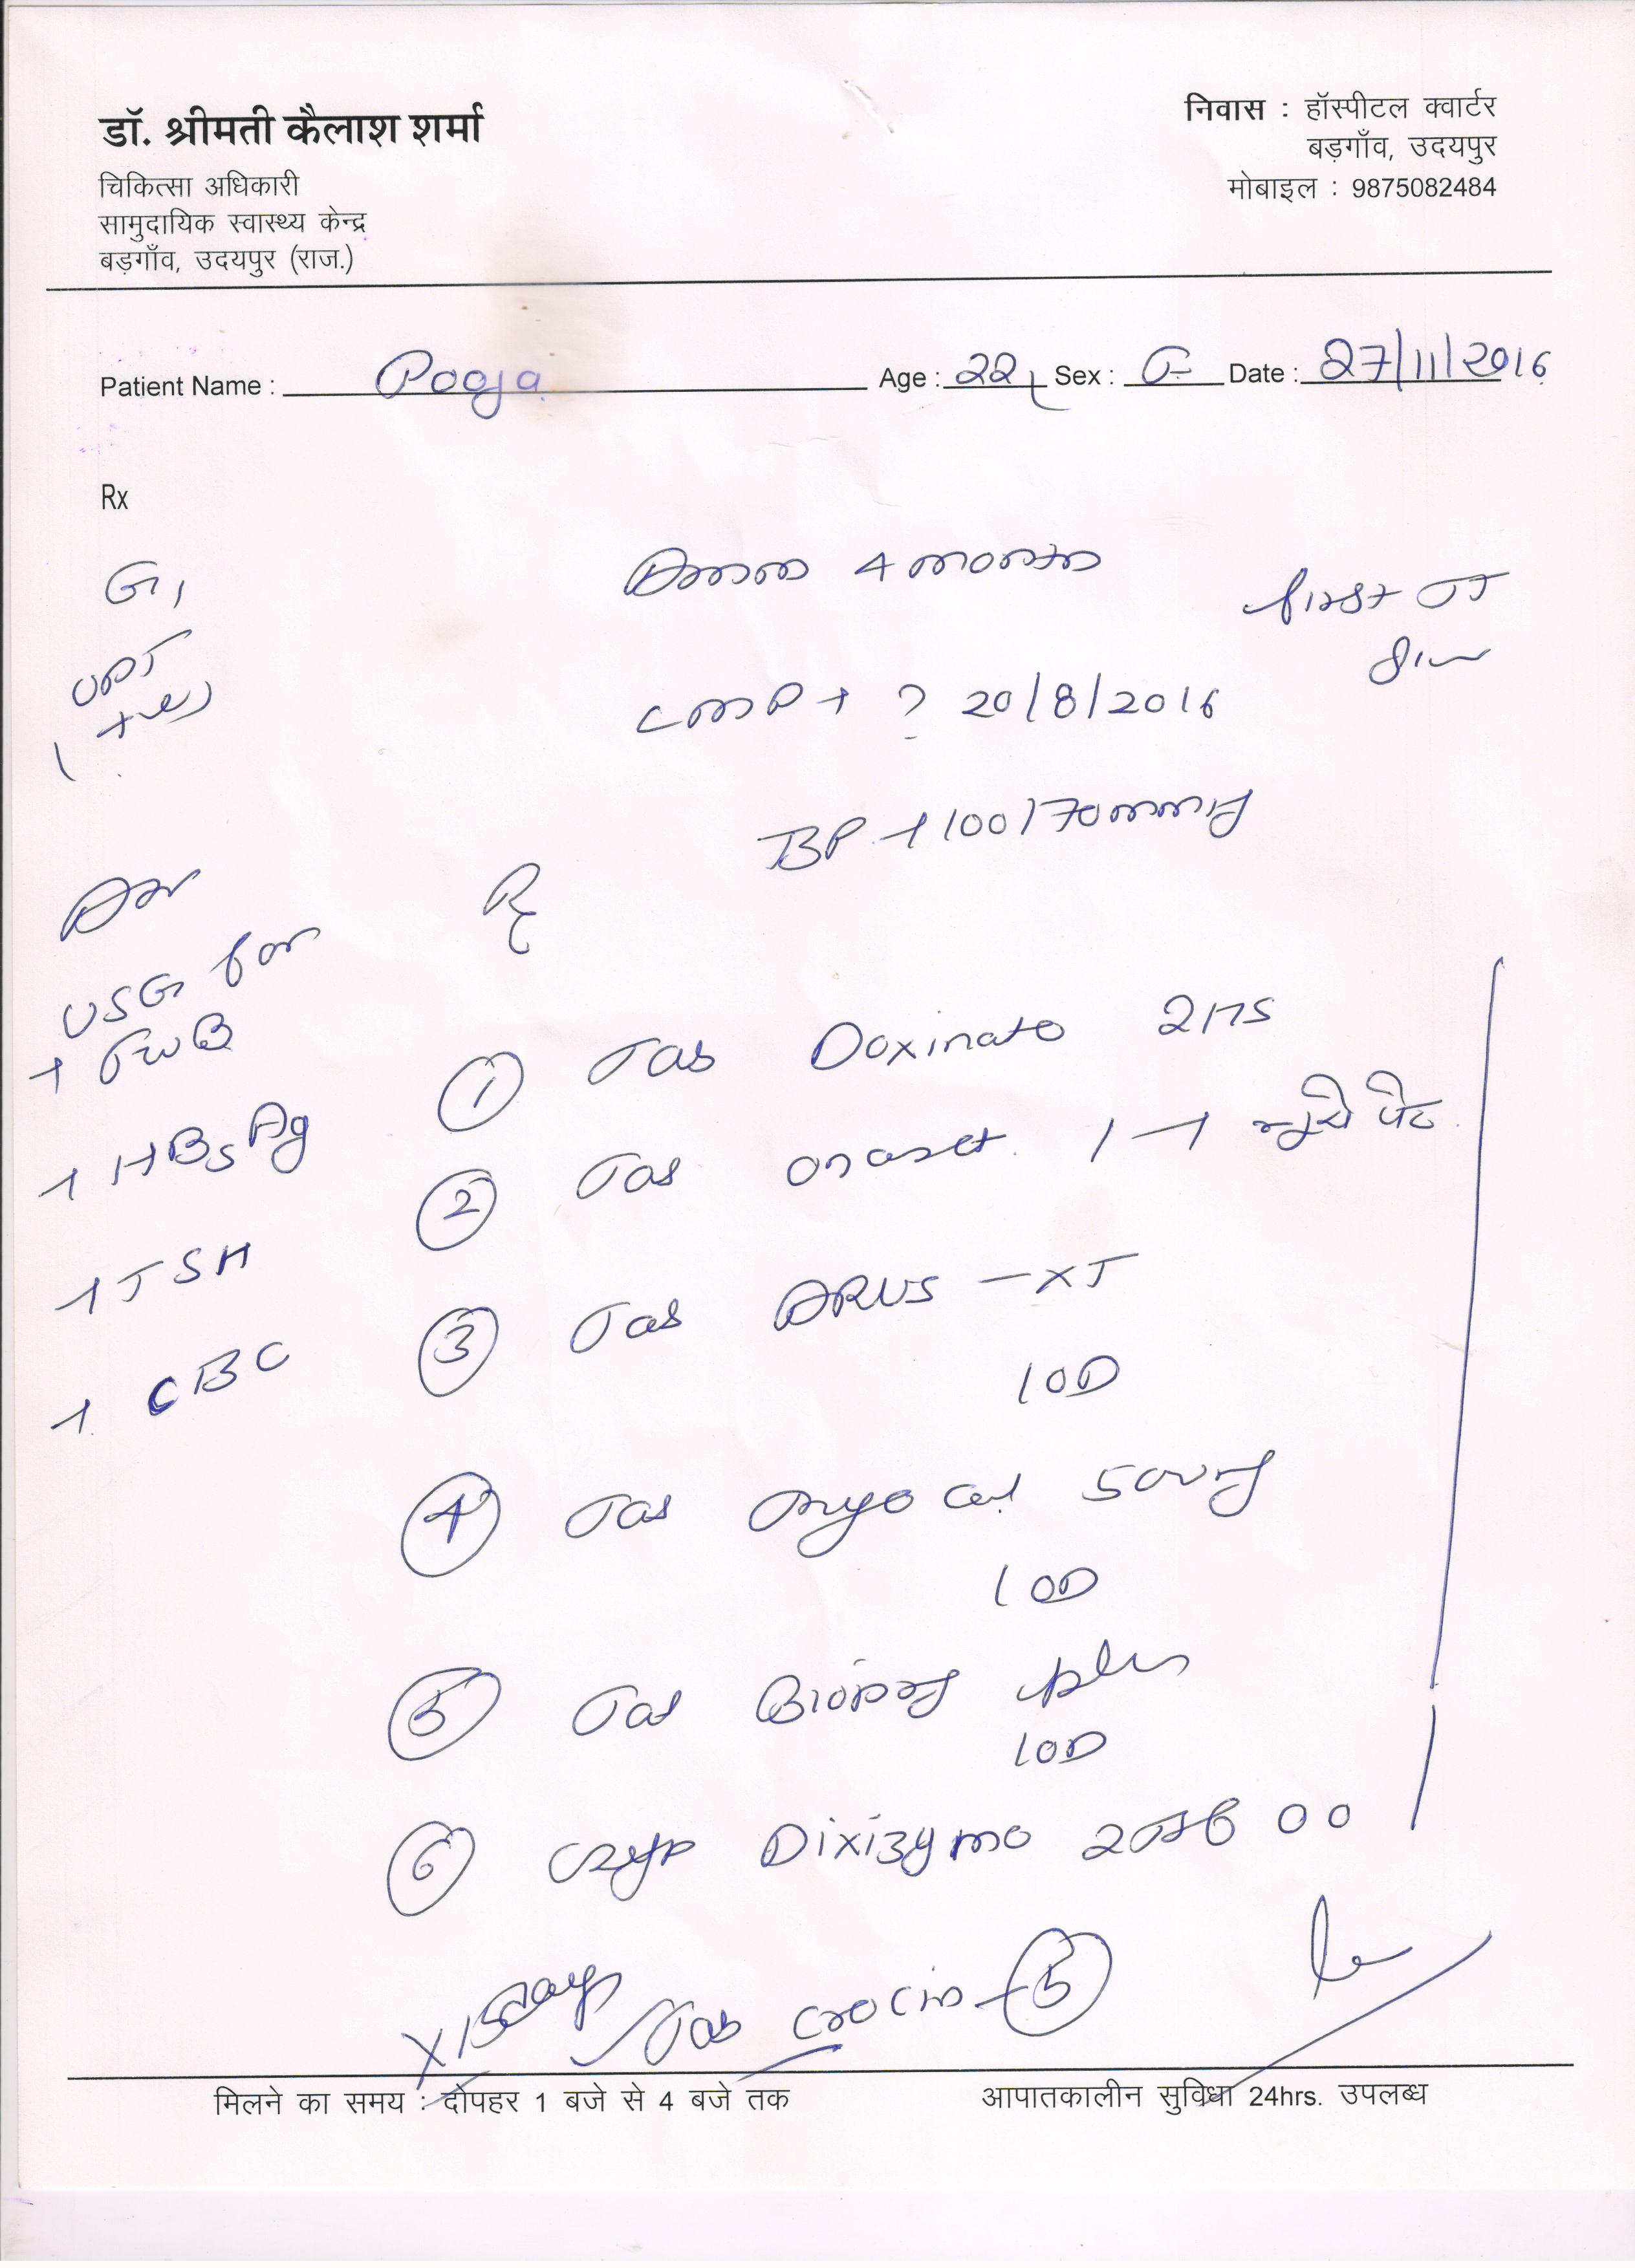 डॉ. श्रीमती कैलाश शर्मा
चिकित्सा अधिकारी
सामुदायिक स्वास्थ्य केन्द्र
बड़गाँव, उदयपुर (राज.)
निवास : हॉस्पीटल क्वार्टर
बड़गाँव, उदयपुर
मोबाइल : 9875082484
Patient Name : Pooja Age : 22 Sex : F Date : 27/11/2016
Rx
G1
UPT
(+ve)
4 month
first TT
LMP → ? 20/8/2016
BP → 100/70 mmHg
Adv
USG for
→ FWB
→ HBsAg
→ TSH
→ CBC
Rx
① Tab Doxinate 2HS
② Tab 1-1 भूखे पेट
③ Tab - XT
1 OD
④ Tab 500mg
1 OD
⑤ Tab plus
1 OD
⑥ Syp 2TSF
X 15 days
Tab Crocin - ⑤
मिलने का समय : दोपहर 1 बजे से 4 बजे तक
आपातकालीन सुविधा 24hrs. उपलब्ध